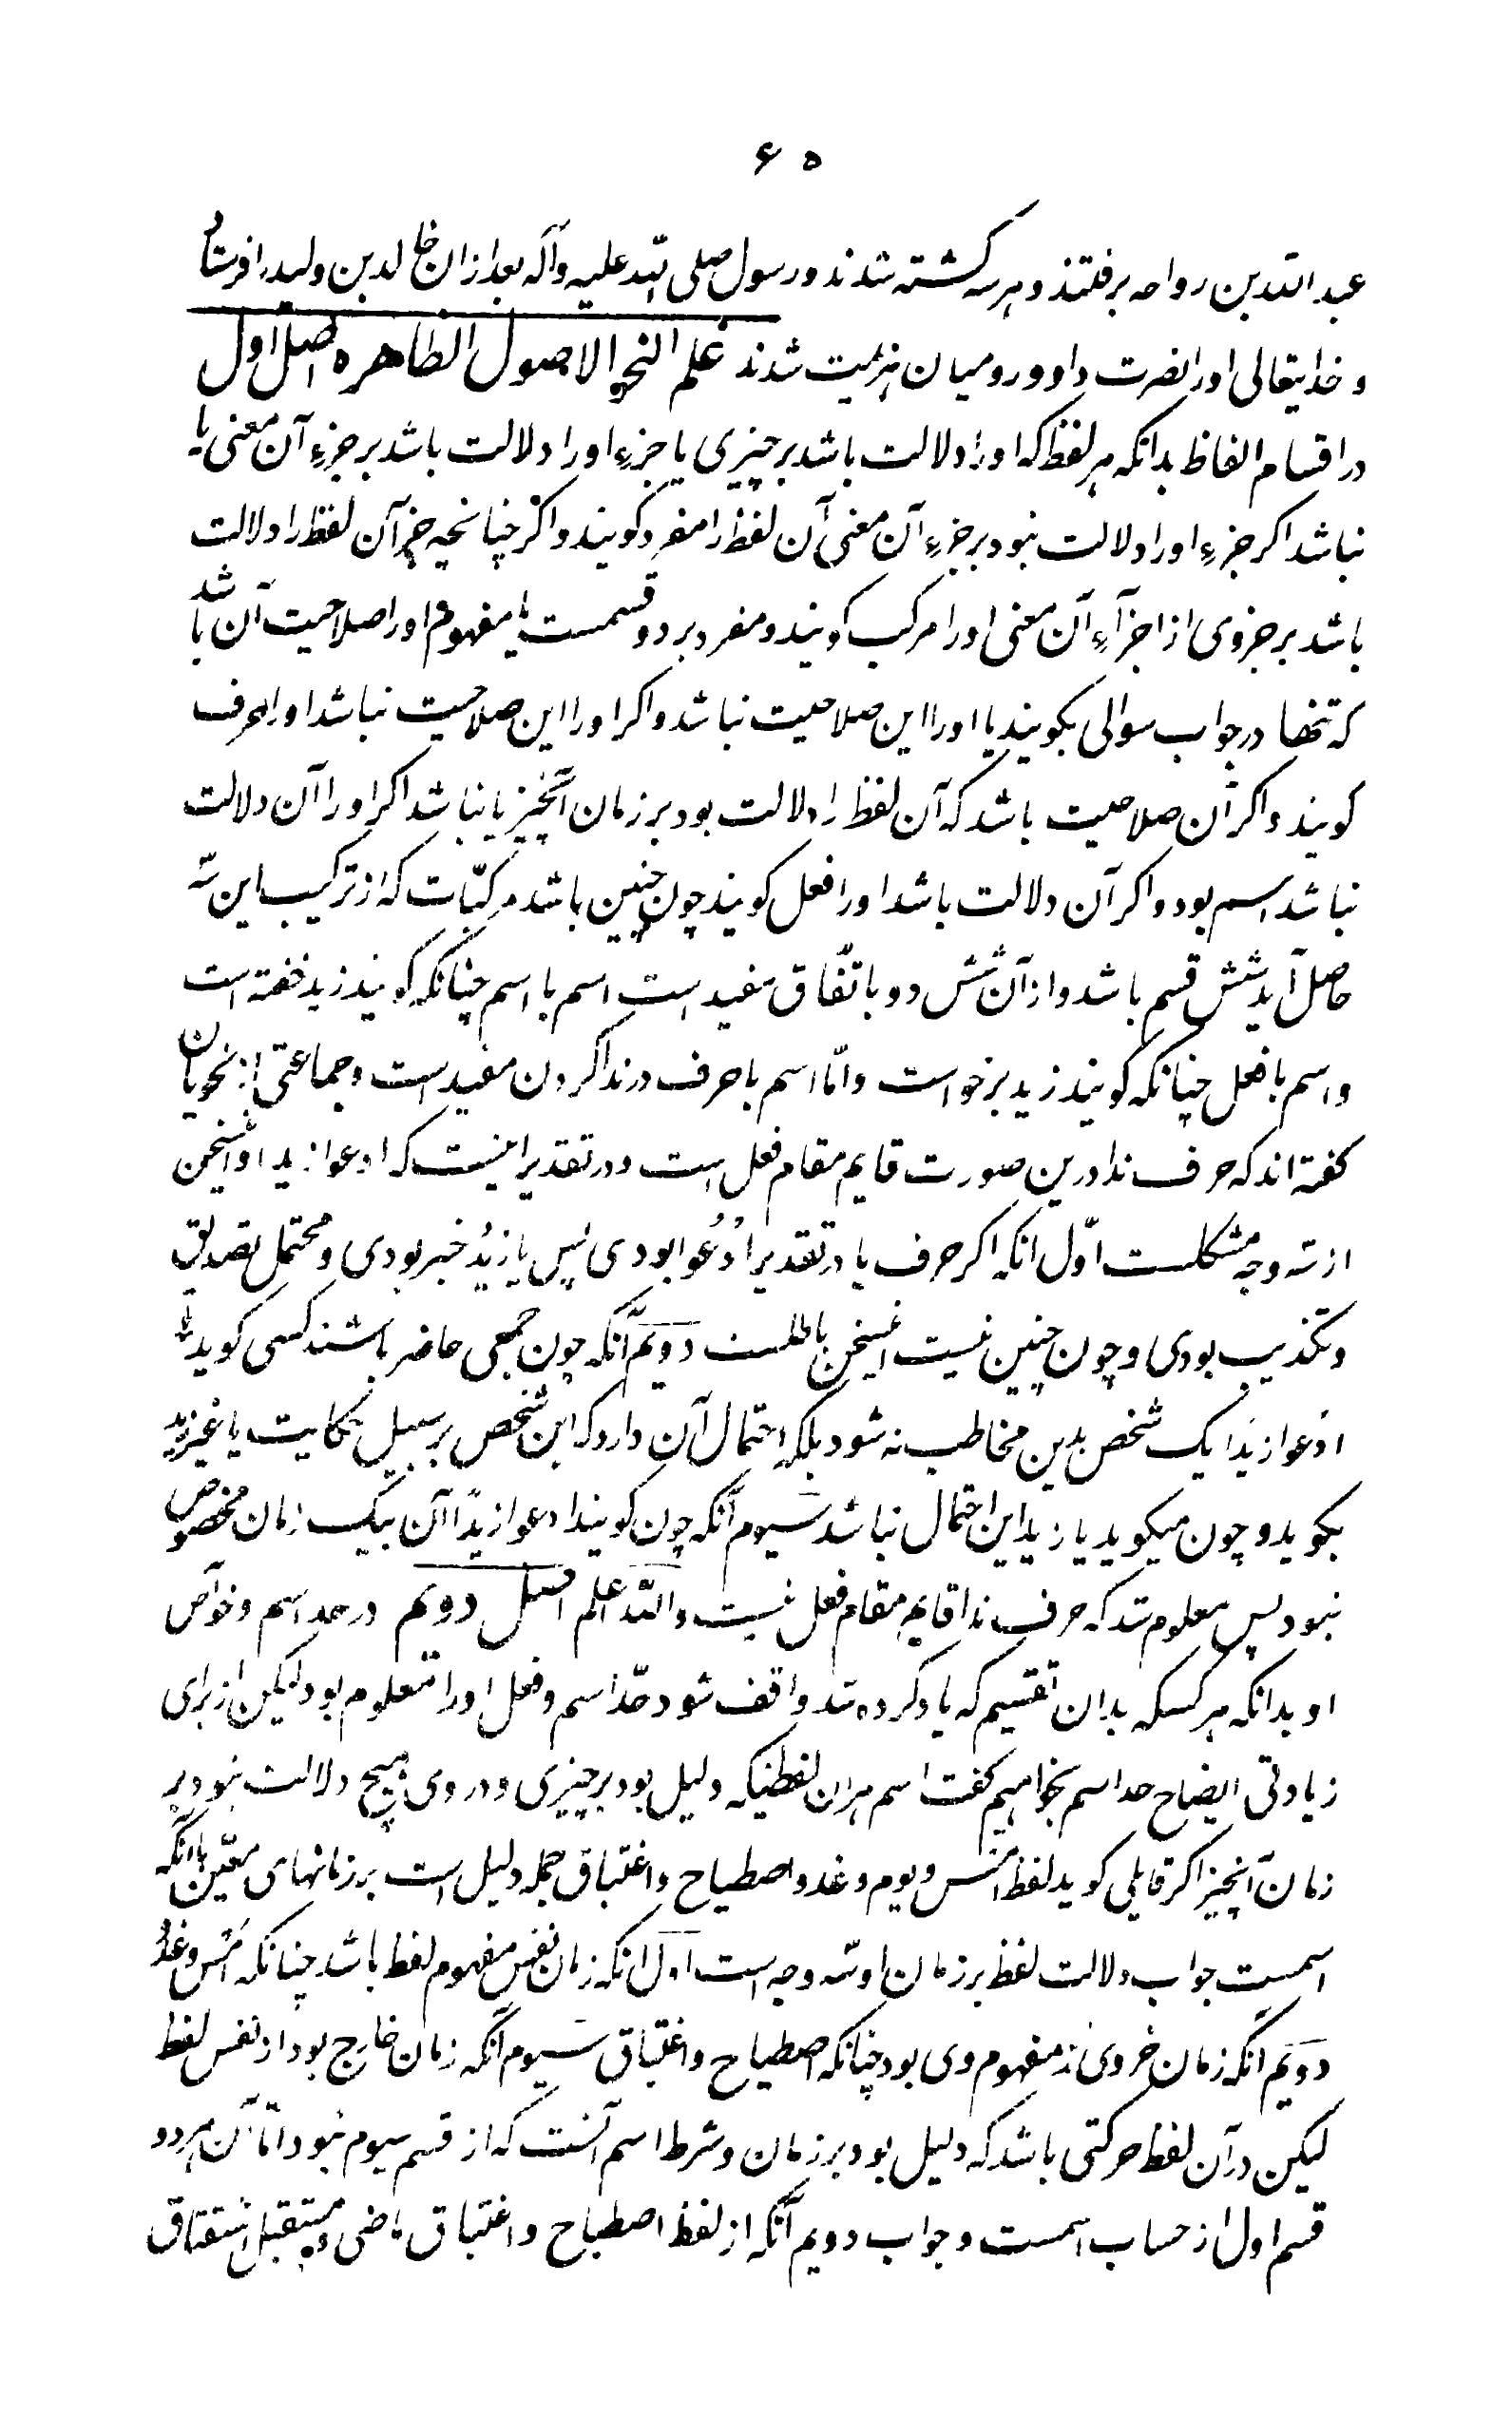 ۶۵
عبد الله بن رواحه برفتند و هر سه کشته شدند و رسول صلی الله علیه وآله بعد از ان خالد بن ولید را فرستاد
و خدایتعالی او را نصرت داد و رومیان هزیمت شدند علم النحو الاصول الظاهره اصل اول
در اقسام الفاظ بدانکه هر لفظ که او را دلالت باشد بر چیزی یا جزءِ او را دلالت باشد بر جزءِ آن معنی یا
نباشد اکر جزءِ او را دلالت نبود بر جزءِ آن معنی آن لفظ را مفرد کویند و اکر چنانچه جزءِ آن لفظ را دلالت
باشد بر جزوی از اجزآءِ آن معنی او را مرکب کویند و مفرد بر دو قسمست یا مفهوم او را صلاحیت آن باشد
که تنها در جواب سوالی بکویند یا او را این صلاحیت نباشد و اکر او را این صلاحیت نباشد او را حرف
کویند و اکر آن صلاحیت باشد که آن لفظ را دلالت بود بر زمان آنچیز یا نباشد اکر او را آن دلالت
نباشد اسم بود و اکر آن دلالت باشد او را فعل کویند چون چنین باشد مرکبّات که از ترکیب این سه
حاصل آید شش قسم باشد و از آن شش دو باتفّاق مفید است اسم با اسم چنانکه کویند زید خفته است
و اسم با فعل چنانکه کویند زید برخواست و امّا اسم با حرف در ندا کردن مفید است و جماعتی از نحویان
کفته اند که حرف ندا درین صورت قایم مقام فعل است و در تقدیر اینست که ادعوا زیدا و اینسخن
از سه وجه مشکلست اوّل انکه اکر حرف یا در تقدیر اُدْعُوا بودی پس یا زیدُ خبر بودی و محتمل تصدیق
و تکذیب بودی و چون چنین نیست اینسخن باطلست دویّم آنکه چون جمعی حاضر باشند کسی کوید که
ادُعوا زیدَا یک شخص بدین مخاطب نه شود بلکه احتمال آن دارد که این شخص بر سبیل حکایت با غیر زید
بکوید و چون میکوید یا زید این احتمال نباشد سیوم آنکه چون کویند ادعوا زیدًا آن بیک زمان مخصوص
نبود پس معلوم شد که حرف ندا قایم مقام فعل نیست و الله اعلم اصل دویم در حد اسم و خوّاص
او بدانکه هر کسکه بدان تقسیم که یاد کرده شد واقف شود حدّ اسم و فعل او را معلوم بود لیکن از برای
زیادتی ایضاح حد اسم بخواهیم کفت اسم هر ان لفظیکه دلیل بود بر چیزی و در وی هیچ دلالت نبود بر
زمان آنچیز اکر قایلی کوید لفظ امس و یوم و غد و اصطباح و اغتباق جمله دلیل است بر زمانهای معیّن با آنکه
اسمست جواب دلالت لفظ بر زمان او سه وجه است اول انکه زمان نفس مفهوم لفظ باشد چنانکه امس و غدُ
دویم آنکه زمان جزوی از مفهوم وی بود چنانکه اصطباح و اغتباق سیوم آنکه زمان خارج بود از نفس لفظ
لیکن در آن لفظ حرکتی باشد که دلیل بود بر زمان و شرط اسم آنست که از قسم سیوم نبود امّا آن هر دو
قسم اول از حساب اسمست و جواب دویم آنکه از لفظ اصطباح و اغتباق ماضی و مستقبل اشتقاق